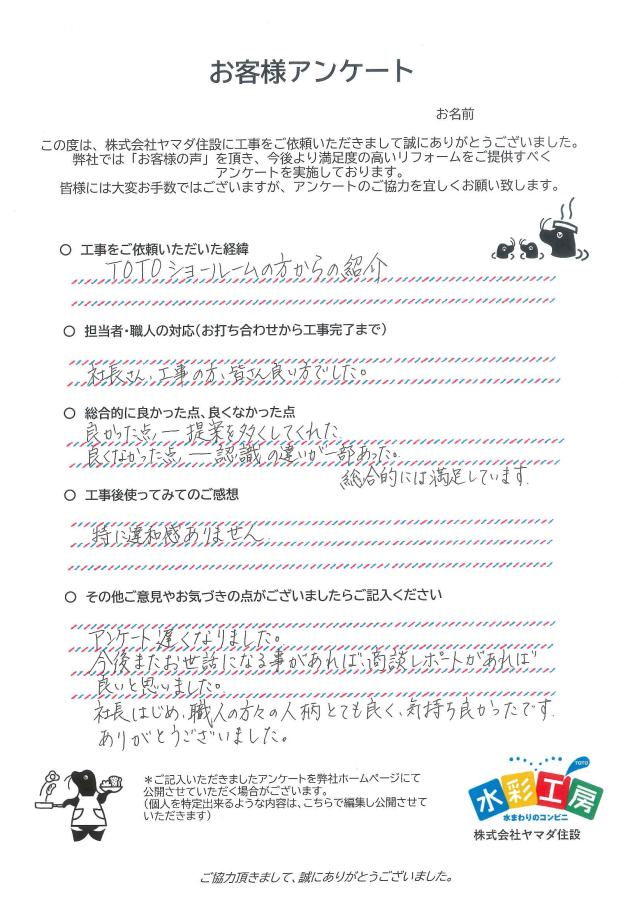 お客様アンケート
お名前
この度は、株式会社ヤマダ住設に工事をご依頼いただきまして誠にありがとうございました。
弊社では「お客様の声」を頂き、今後より満足度の高いリフォームをご提供すべく
アンケートを実施しております。
皆様には大変お手数ではございますが、アンケートのご協力を宜しくお願い致します。
○ 工事をご依頼いただいた経緯
TOTOショールームの方からの紹介
○ 担当者・職人の対応(お打ち合わせから工事完了まで)
社長さん、工事の方、皆さん良い方でした。
○ 総合的に良かった点、良くなかった点
良かった点 ー 提案を多くしてくれた
良くなかった点 ー 認識の違いが一部あった。
総合的には満足しています.
○ 工事後使ってみてのご感想
特に違和感ありません.
○ その他ご意見やお気づきの点がございましたらご記入ください
アンケート遅くなりました。
今後またお世話になる事があれば、商談レポートがあれば
良いと思いました。
社長はじめ、職人の方々の人柄とても良く、気持ち良かったです.
ありがとうございました。
＊ご記入いただきましたアンケートを弊社ホームページにて
公開させていただく場合がございます。
(個人を特定出来るような内容は、こちらで編集し公開させて
いただきます)
TOTO
水彩工房
水まわりのコンビニ
株式会社ヤマダ住設
ご協力頂きまして、誠にありがとうございました。